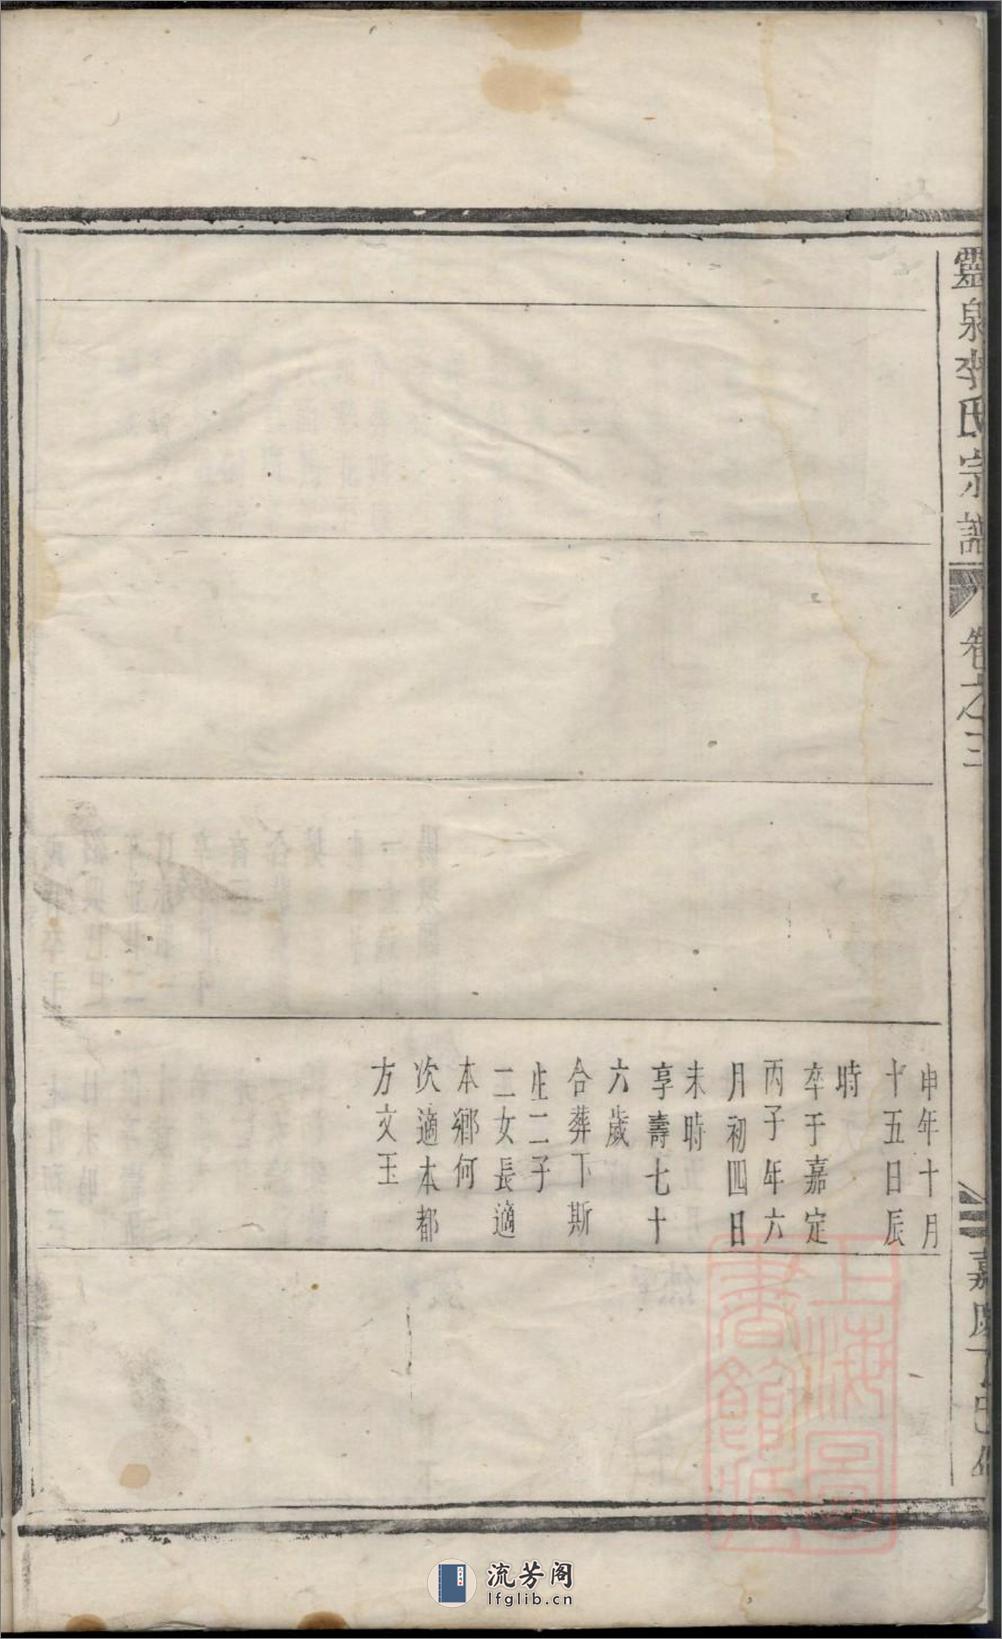 靈泉李氏宗譜
卷之三
嘉慶丁巳
申年十月
十五日辰
時
卒于嘉定
丙子年六
月初四日
未時
享壽七十
六歲
合葬下斯
生二子
二女長適
本鄉何
次適本都
方文玉
上海图
書館藏
流芳阁
lfglib.cn